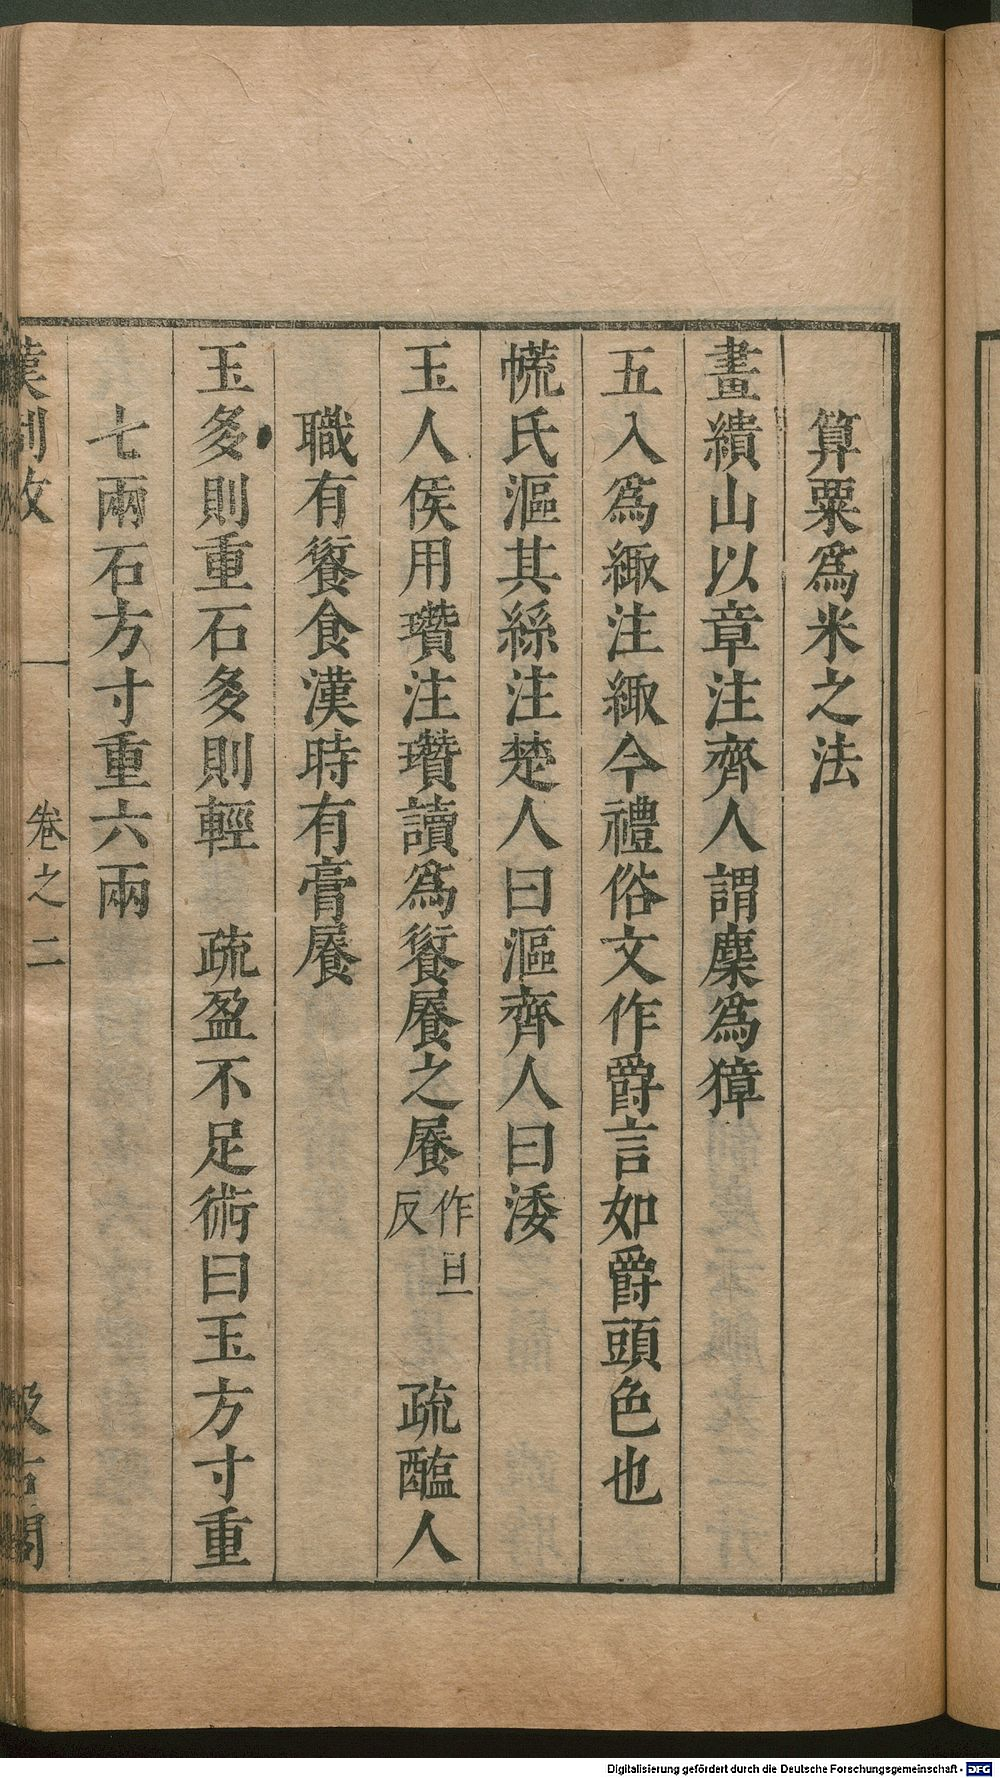 算粟爲米之法
畫繢山以章注齊人謂麇爲獐
五入爲緅注緅今禮俗文作爵言如爵頭色也
㡛氏漚其絲注楚人曰漚齊人曰涹
玉人侯用瓚注瓚讀爲餐𩞉之𩞉作旦反　疏醢人
職有餐食漢時有膏𩞉
玉多則重石多則輕　疏盈不足術曰玉方寸重
七兩石方寸重六兩
漢制攷　卷之二　汲古閣
Digitalisierung gefördert durch die Deutsche Forschungsgemeinschaft - DFG